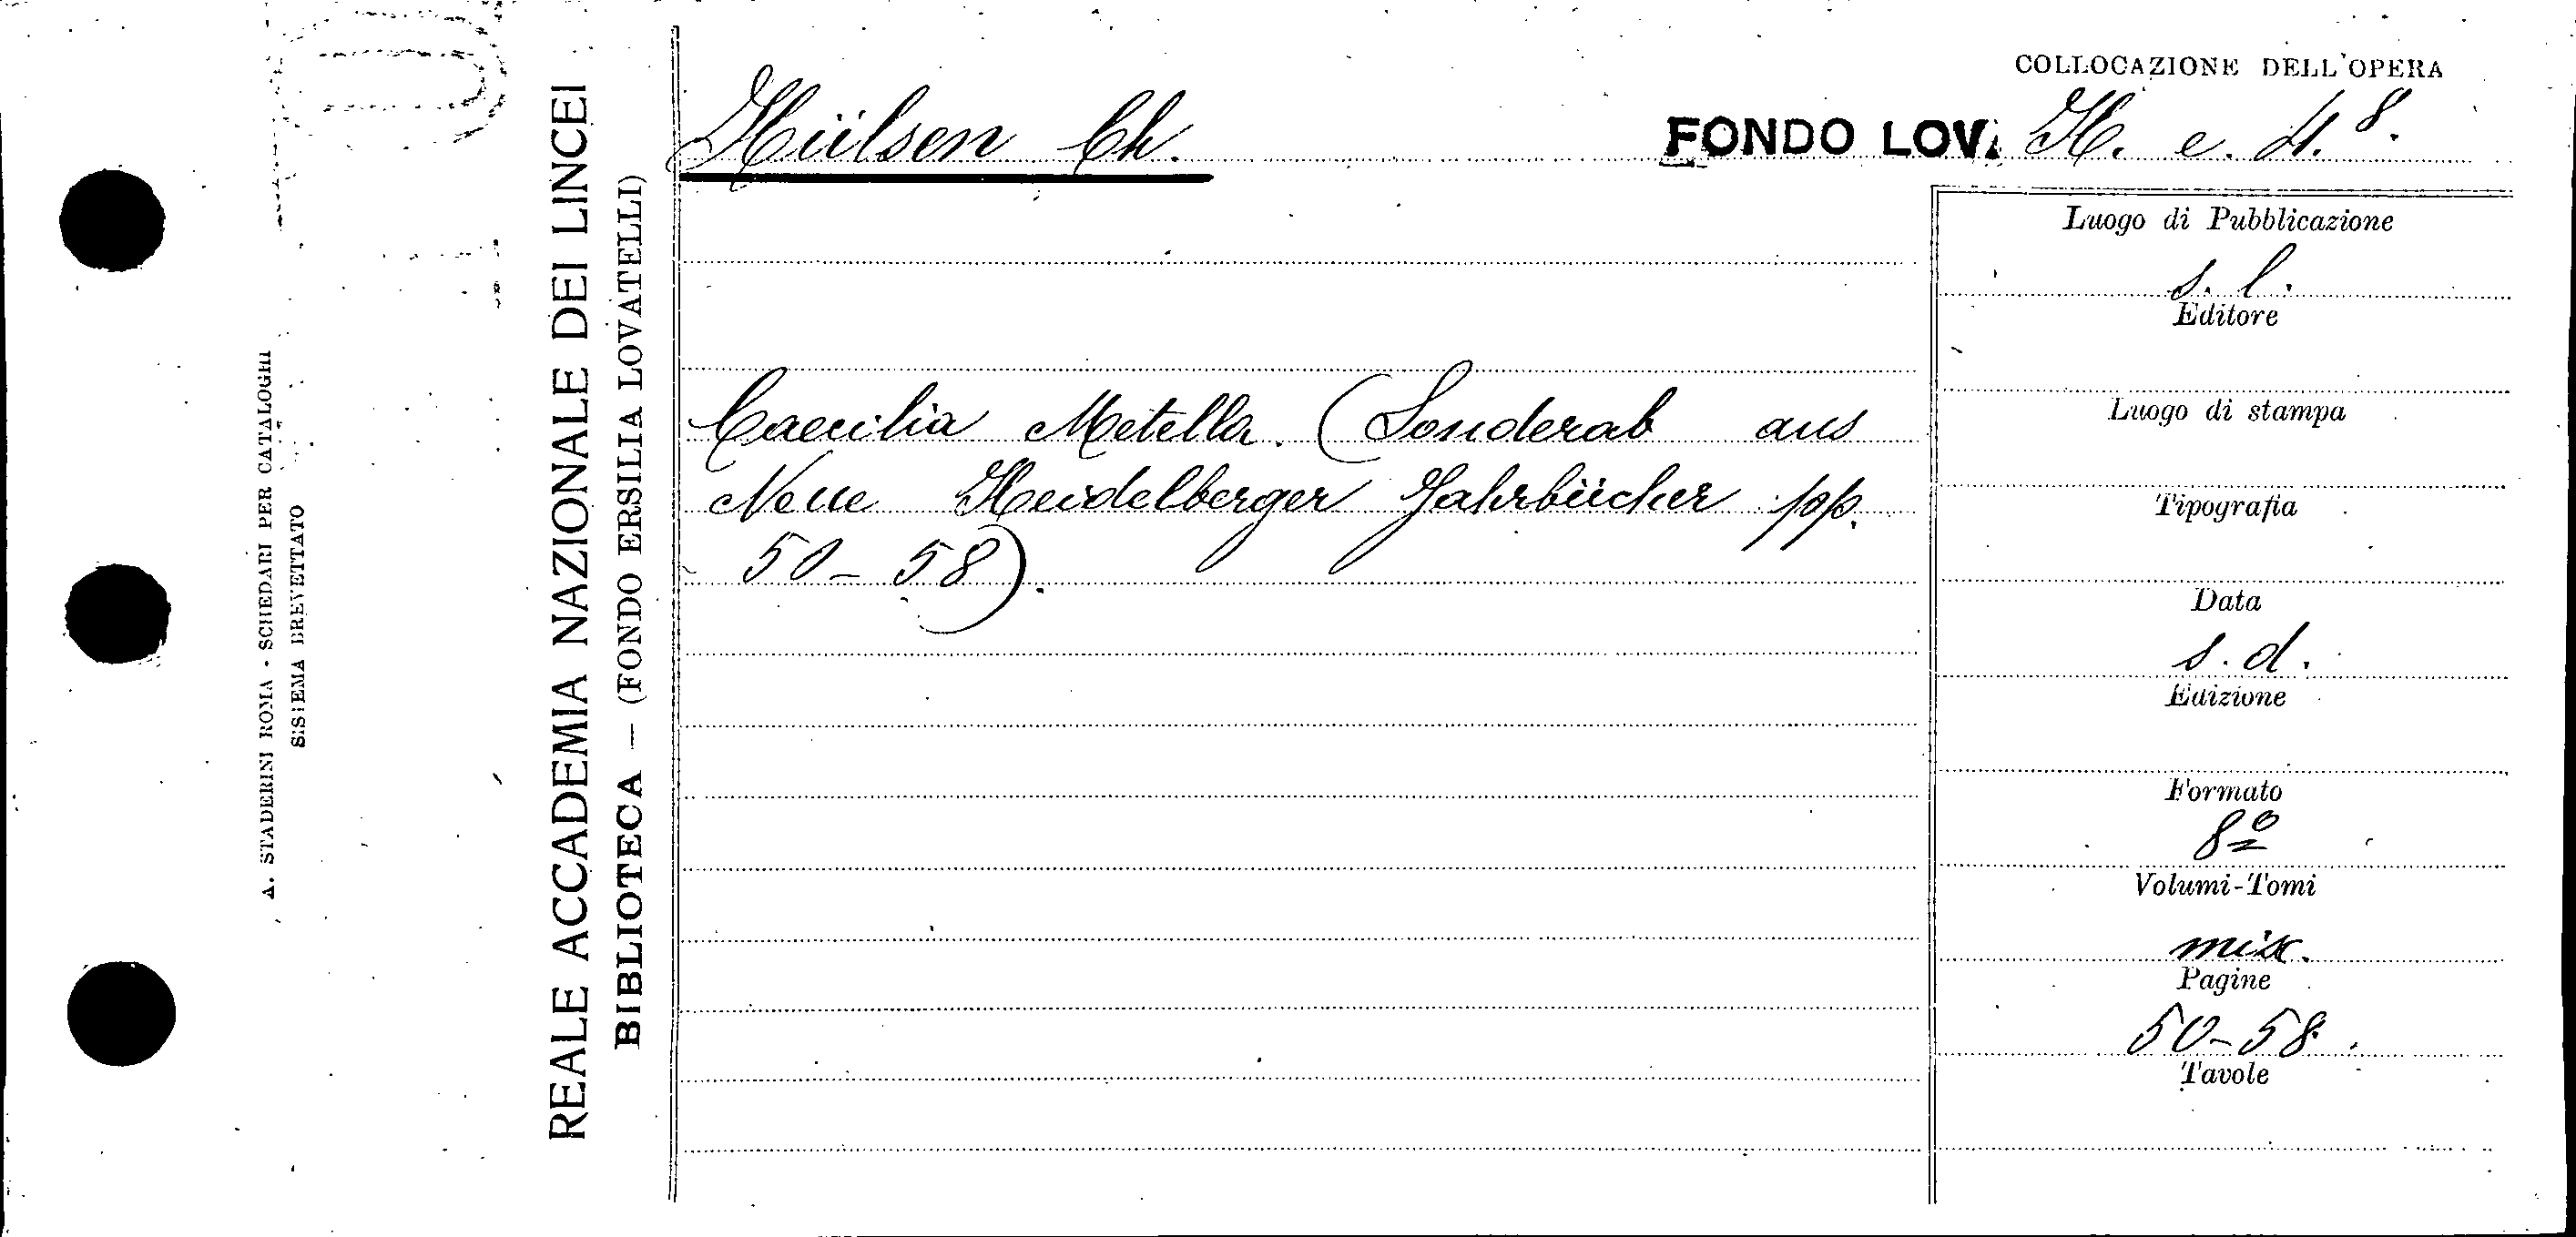 COLLOCAZIONE DELL'OPERA
Hülsen Ch.
FONDO LOV. H. e. 4. 8.
Caecilia Metella. (Sonderab aus
Neue Heidelberger Jahrbücher pp.
50-58).
Luogo di Pubblicazione
s. l.
Editore
Luogo di stampa
Tipografia
Data
s. d.
Edizione
Formato
8º
Volumi-Tomi
misc.
Pagine
50-58.
Tavole
REALE ACCADEMIA NAZIONALE DEI LINCEI
BIBLIOTECA — (FONDO ERSILIA LOVATELLI)
A. STADERINI ROMA - SCHEDARI PER CATALOGHI
SISTEMA BREVETTATO